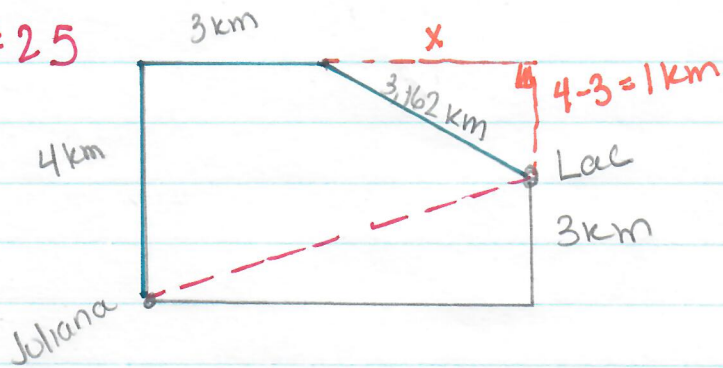 =25
3km
x
4-3=1km
3,162 km
4km
Lac
3km
Juliana